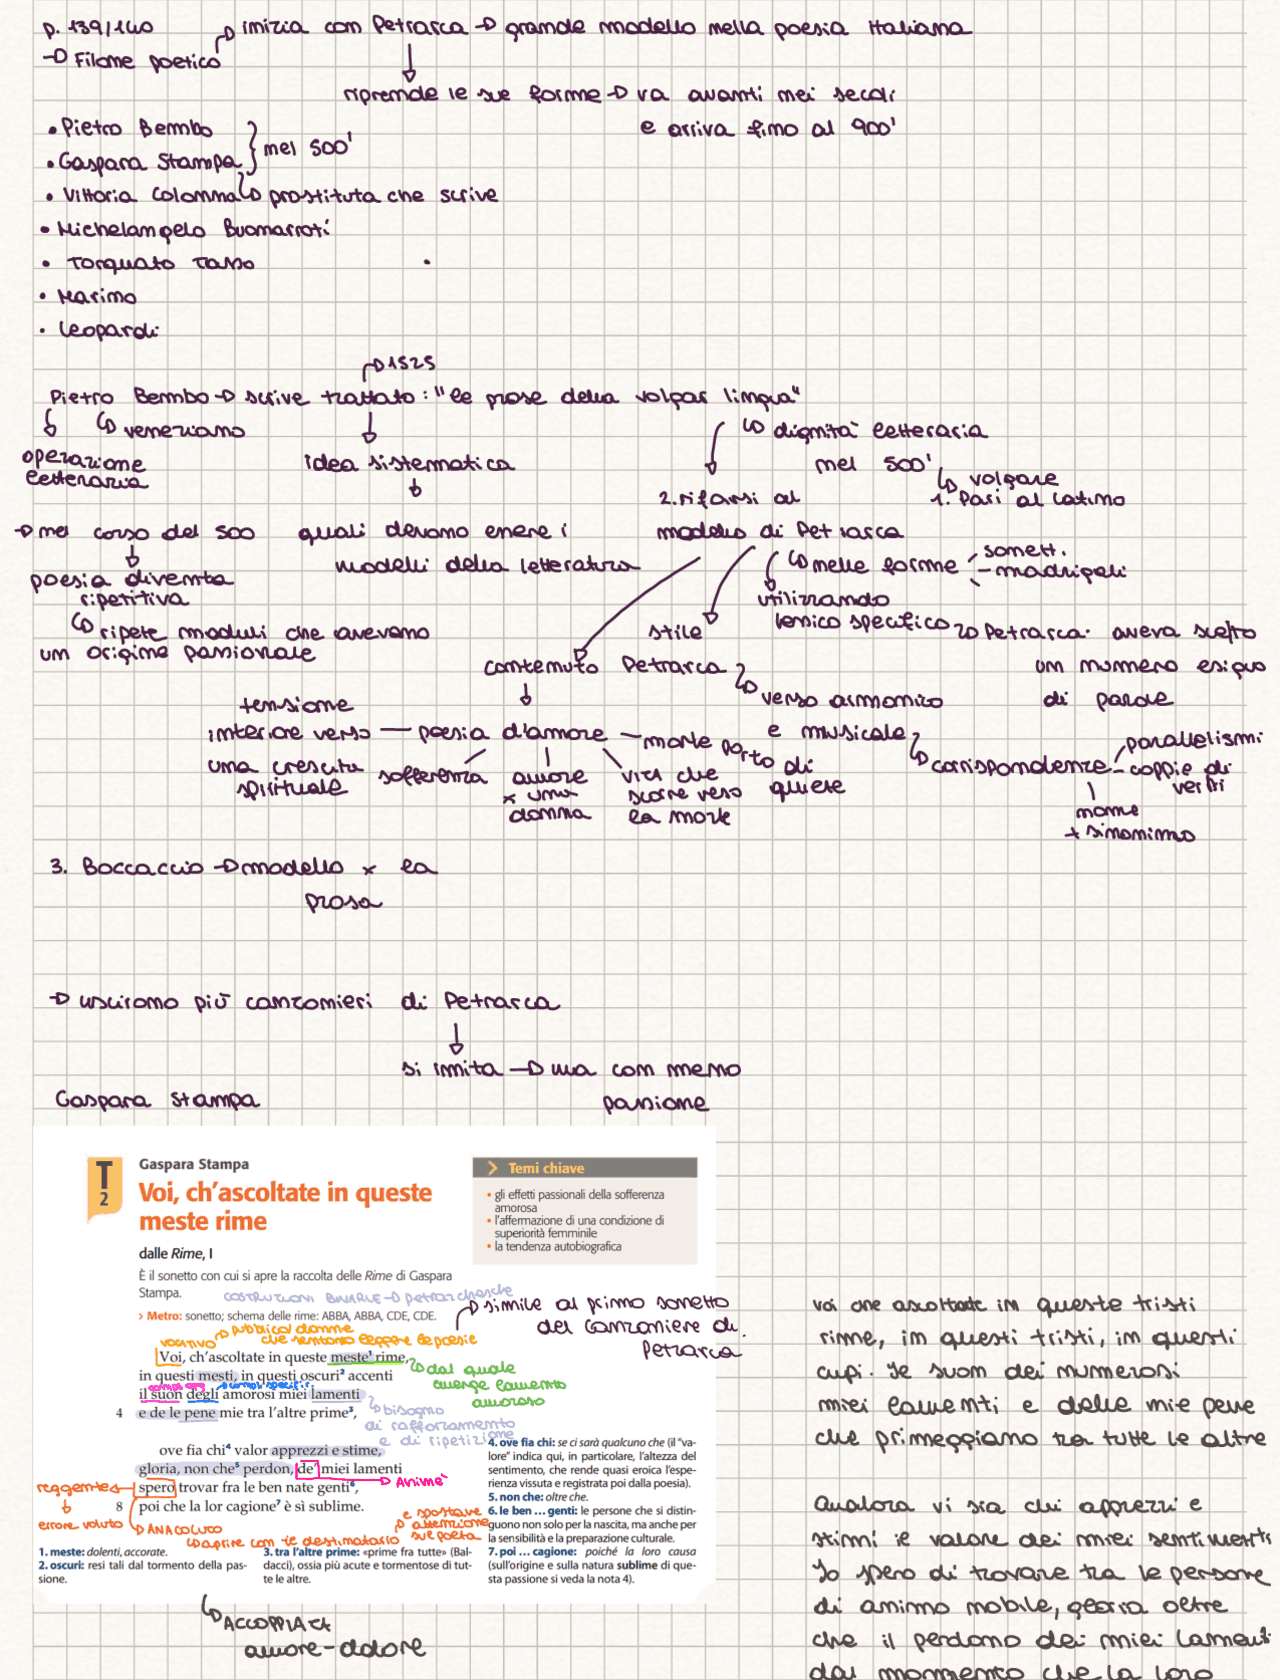 p. 139/140
→ Filone poetico → inizia con Petrarca → grande modello nella poesia Italiana
riprende le sue forme → va avanti nei secoli
e arriva fino al 900'
• Pietro Bembo
• Gaspara Stampa } nel 500'
• Vittoria Colonna → prostituta che scrive
• Michelangelo Buonarroti
• Torquato Tasso
• Marino
• Leopardi
→ 1525
Pietro Bembo → scrive trattato: "le prose della volgar lingua"
→ veneziano
→ dignità letteraria
nel 500'
operazione
letteraria
idea sistematica
→ volgare
1. Pari al latino
2. rifarsi al
modello di Petrarca
→ nel corso del 500
quali devono essere i
modelli della letteratura
→ nelle forme - sonett.
- madrigali
poesia diventa
ripetitiva
→ ripete moduli che avevano
un origine passionale
utilizzando
lessico specifico → Petrarca aveva scelto
un numero esiguo
di parole
stile
contenuto Petrarca
→ verso armonico
e musicale
→ corrispondenze - parallelismi
- coppie di
versi
nome
+ sinonimo
tensione
interiore verso — poesia d'amore — morte porto di
quiete
una crescita
spirituale
sofferenza
amore
x una
donna
vita che
scorre verso
la morte
3. Boccaccio → modello x la
prosa
→ uscirono più canzonieri di Petrarca
si imita → ma con meno
passione
Gaspara Stampa
T
2
Gaspara Stampa
Voi, ch'ascoltate in queste
meste rime
dalle Rime, I
È il sonetto con cui si apre la raccolta delle Rime di Gaspara
Stampa.
COSTRUZIONI BINARIE → petrarchesche
> Metro: sonetto; schema delle rime: ABBA, ABBA, CDE, CDE.
> Temi chiave
• gli effetti passionali della sofferenza
amorosa
• l'affermazione di una condizione di
superiorità femminile
• la tendenza autobiografica
→ simile al primo sonetto
del canzoniere di
Petrarca
vocativo → pubblico/donne
che sentono leggere le poesie
Voi, ch'ascoltate in queste meste¹ rime,
in questi mesti, in questi oscuri² accenti
il suon degli amorosi miei lamenti
4 e de le pene mie tra l'altre prime³,
→ dal quale
emerge lamento
amoroso
→ bisogno
di rafforzamento
e di ripetizione
ove fia chi⁴ valor apprezzi e stime,
gloria, non che⁵ perdon, de' miei lamenti
spero trovar fra le ben nate genti⁶,
8 poi che la lor cagione⁷ è sì sublime.
reggente
errore voluto
→ ANACOLUTO
→ aprire con il destinatario
e spostare
attenzione
sul poeta
1. meste: dolenti, accorate.
2. oscuri: resi tali dal tormento della pas-
sione.
3. tra l'altre prime: «prime fra tutte» (Bal-
dacci), ossia più acute e tormentose di tut-
te le altre.
4. ove fia chi: se ci sarà qualcuno che (il "va-
lore" indica qui, in particolare, l'altezza del
sentimento, che rende quasi eroica l'espe-
rienza vissuta e registrata poi dalla poesia).
5. non che: oltre che.
6. le ben ... genti: le persone che si distin-
guono non solo per la nascita, ma anche per
la sensibilità e la preparazione culturale.
7. poi ... cagione: poiché la loro causa
(sull'origine e sulla natura sublime di que-
sta passione si veda la nota 4).
→ ACCOPPIATA
amore-dolore
voi che ascoltate in queste tristi
rime, in questi tristi, in questi
cupi. Ie suon dei numerosi
miei lamenti e delle mie pene
che primeggiano tra tutte le altre
Qualora vi sia chi apprezzi e
stimi il valore dei miei sentimenti
Io spero di trovare tra le persone
di animo nobile, gloria oltre
che il perdono dei miei lamenti
dal momento che la loro